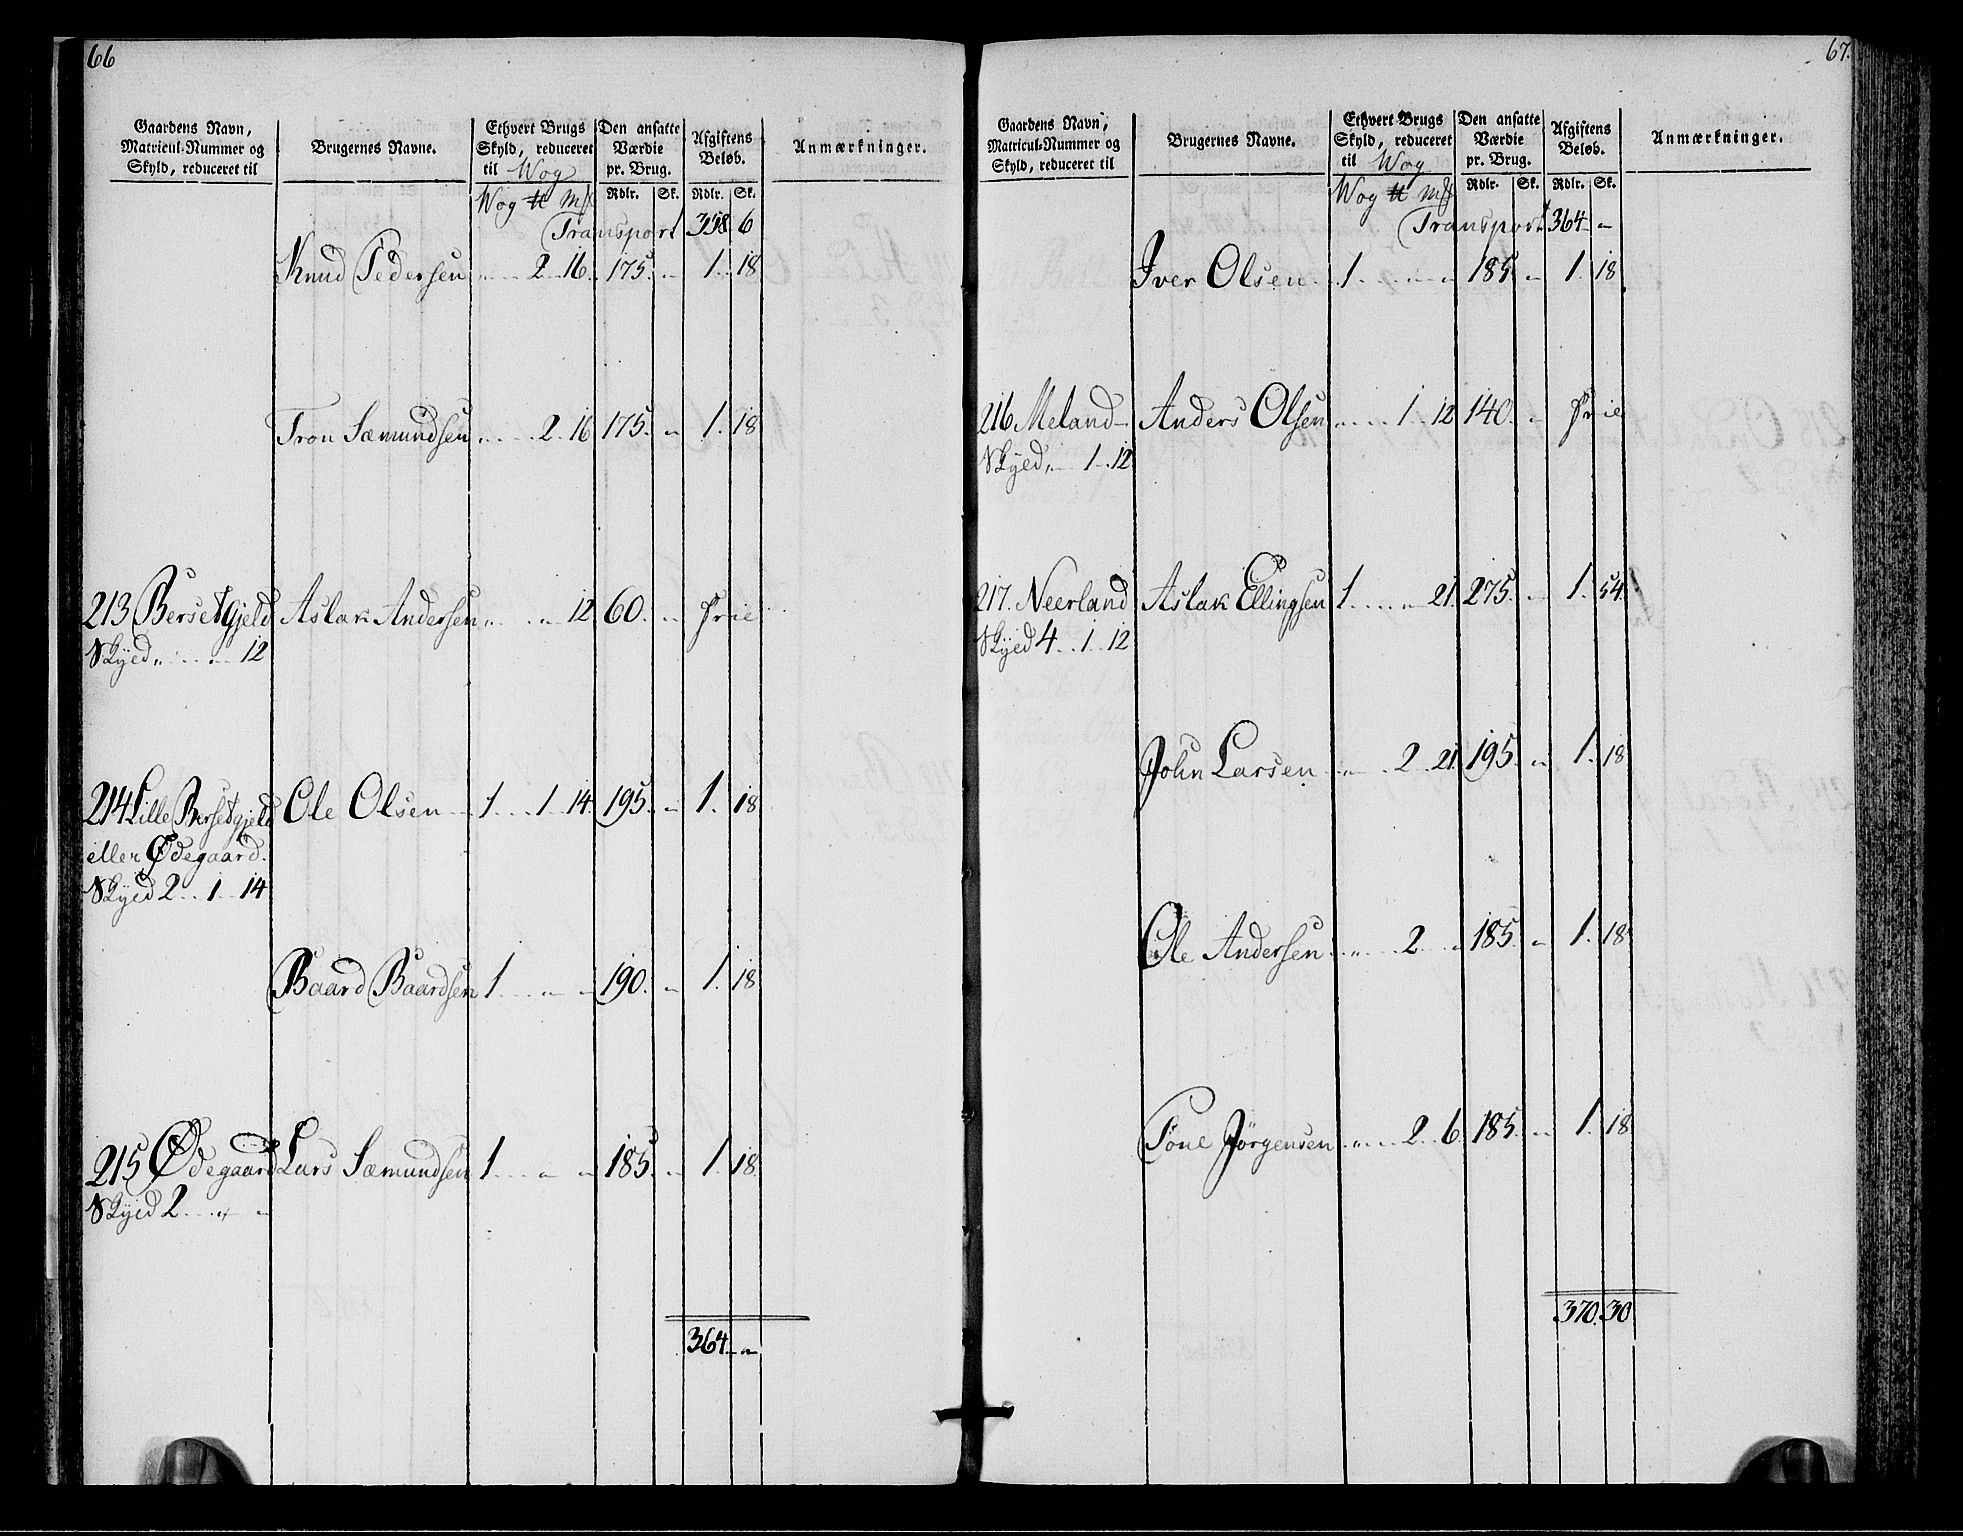 66
Gaardens Navn, Matricul-Nummer og Skyld, reduceret til | Brugernes Navne. | Ethvert Brugs Skyld, reduceret til Wog | Den ansatte Værdie pr. Brug. | Afgiftens Beløb. | Anmærkninger.
Wog ℔ Mk | Rdlr. | Sk. | Rdlr. | Sk.
Transport 358 6
Knud Pedersen „ 2 16 175 „ 1 18
Tron Sæmundsen „ 2 16 175 „ 1 18
213 Bersetgjeld Aslak Andersen „ „ 12 60 „ frie
Skyld „ „ 12
214 Lille Bersetgjeld Ole Olsen 1 1 14 195 „ 1 18
eller Ødegaard.
Skyld 2 1 14
Baard Baardsen 1 „ „ 190 „ 1 18
215 Ødegaard Lars Sæmundsen 1 „ „ 185 „ 1 18
Skyld 2 „ „
364 „
67.
Gaardens Navn, Matricul-Nummer og Skyld, reduceret til | Brugernes Navne. | Ethvert Brugs Skyld, reduceret til Wog | Den ansatte Værdie pr. Brug. | Afgiftens Beløb. | Anmærkninger.
Wog ℔ Mk | Rdlr. | Sk. | Rdlr. | Sk.
Transport 364 „
Iver Olsen 1 „ „ 185 „ 1 18
216 Meland Anders Olsen „ 1 12 140 „ frie
Skyld „ 1 12
217. Neerland Aslak Ellingsen 1 „ 21 275 „ 1 54
Skyld 4 1 12
John Larsen „ 2 21 195 „ 1 18
Ole Andersen „ 2 „ 185 „ 1 18
Tone Jörgensen „ 2 6 185 „ 1 18
370 30